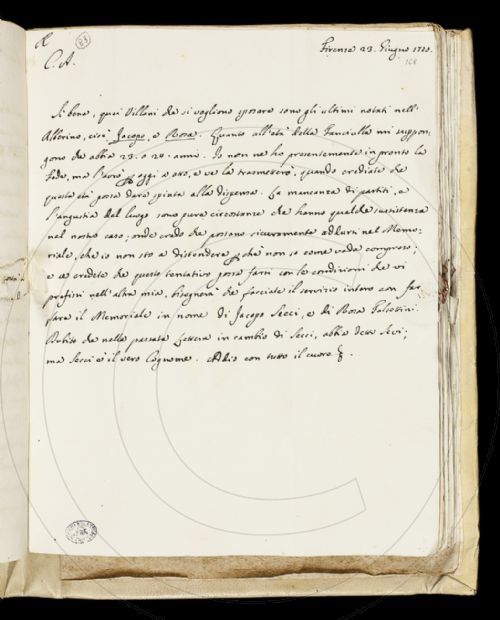 C. A.
Firenze 23. Giugno
168
Sì bene, quei Villani che si vogliono sposare sono gli ultimi notati nell'
Alberino, cioè Jacopo, e Rosa. Quanto all'età della Fanciulla mi suppon-
gono che abbia 23. o 24. anni. Io non ne ho presentemente in pronto la
fede, ma l'avrò oggi a otto, e ve la trasmetterò, quando crediate che
questa età possa dare spinta alla dispensa. La mancanza di partiti, e
l'angustia del luogo sono pure circostanze che hanno qualche sussistenza
nel nostro caso, onde credo che possano sicuramente addursi nel Memo-
riale, che io non sto a distendere perchè non so come vada composto;
e se credete che questo tentativo possa farsi con le condizioni che vi
prefissi nell'altra mia, bisognerà che facciate il servizio intero con far
fare il Memoriale in nome di Jacopo Secci, e di Rosa Falcetini.
Dubito che nella passata Lettera in cambio di Secci, abbia detto Sevi;
ma Secci è il vero Cognome. Addio con tutto il cuore